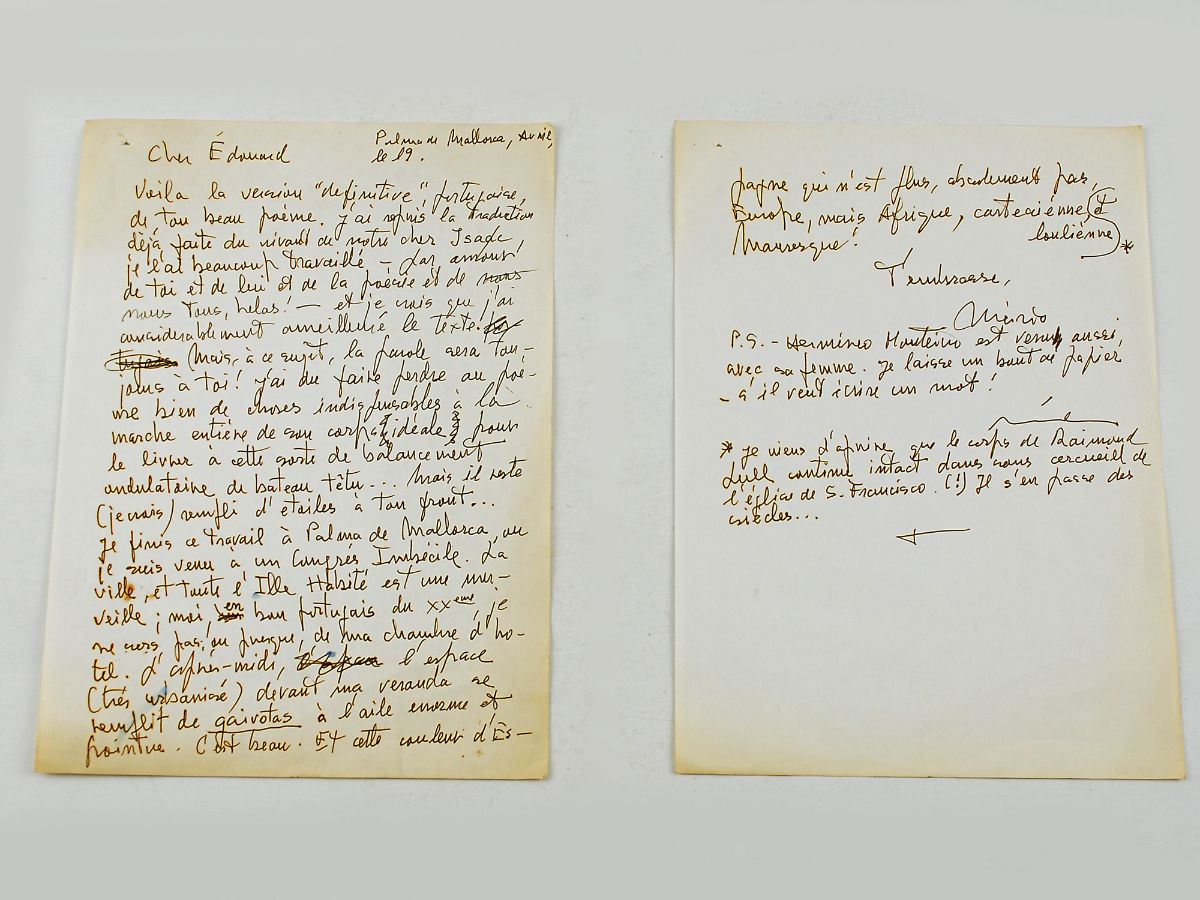 Palma de Mallorca, Avril,
le 19.
Cher Édouard
Voilà la version "definitive", portugaise,
de ton beau poème. J'ai repris la traduction
déjà faite du vivant de notre cher Isaac,
je l'ai beaucoup travaillé – par amour
de toi et de lui et de la poésie et de nous
nous tous, helas! – et je crois que j'ai
considerablement ameilleuré le texte.
Mais, à ce sujet, la parole sera tou-
jours à toi! J'ai du faire perdre au poè-
me bien de choses indispensables à la
marche entière de son corps idéale pour
le livrer à cette sorte de balancement
ondulatoire de bateau têtu... Mais il reste
(je crois) rempli d'étoiles à ton front...
Je finis ce travail à Palma de Mallorca, ou
je suis venu à un Congrés Imbécile. La
ville, et toute l'Ille Habité est une mer-
veille; moi, en bon portugais du XXeme, je
ne sors pas, ou presque, de ma chambre d'ho-
tel. L'après-midi, l'espace
(trés urbanisé) devant ma veranda se
remplit de gaivotas à l'aile enorme et
pointue. C'est beau. Et cette couleur d'Es-
pagne qui n'est plus, absolument pas,
Europe, mais Afrique, cartesiénne, (et
loulienne)*
Mauresque!
T'embrasse,
Mário
P.S. – Hermínio Monteiro est venu aussi,
avec sa femme. Je laisse un bout de papier
– s'il veut écrire un mot!
* Je viens d'aprire que le corps de Raimond
Lull continue intact dans son cercueill de
l'église de S. Francisco. (!) Il s'en passe des
siècles...